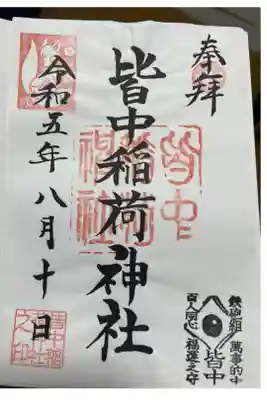 奉拝
皆中稲荷神社
令和五年八月十日
鉄砲組 萬事的中
皆中
百人同心 福運之守
皆中稲荷神社
皆中稲荷社之印